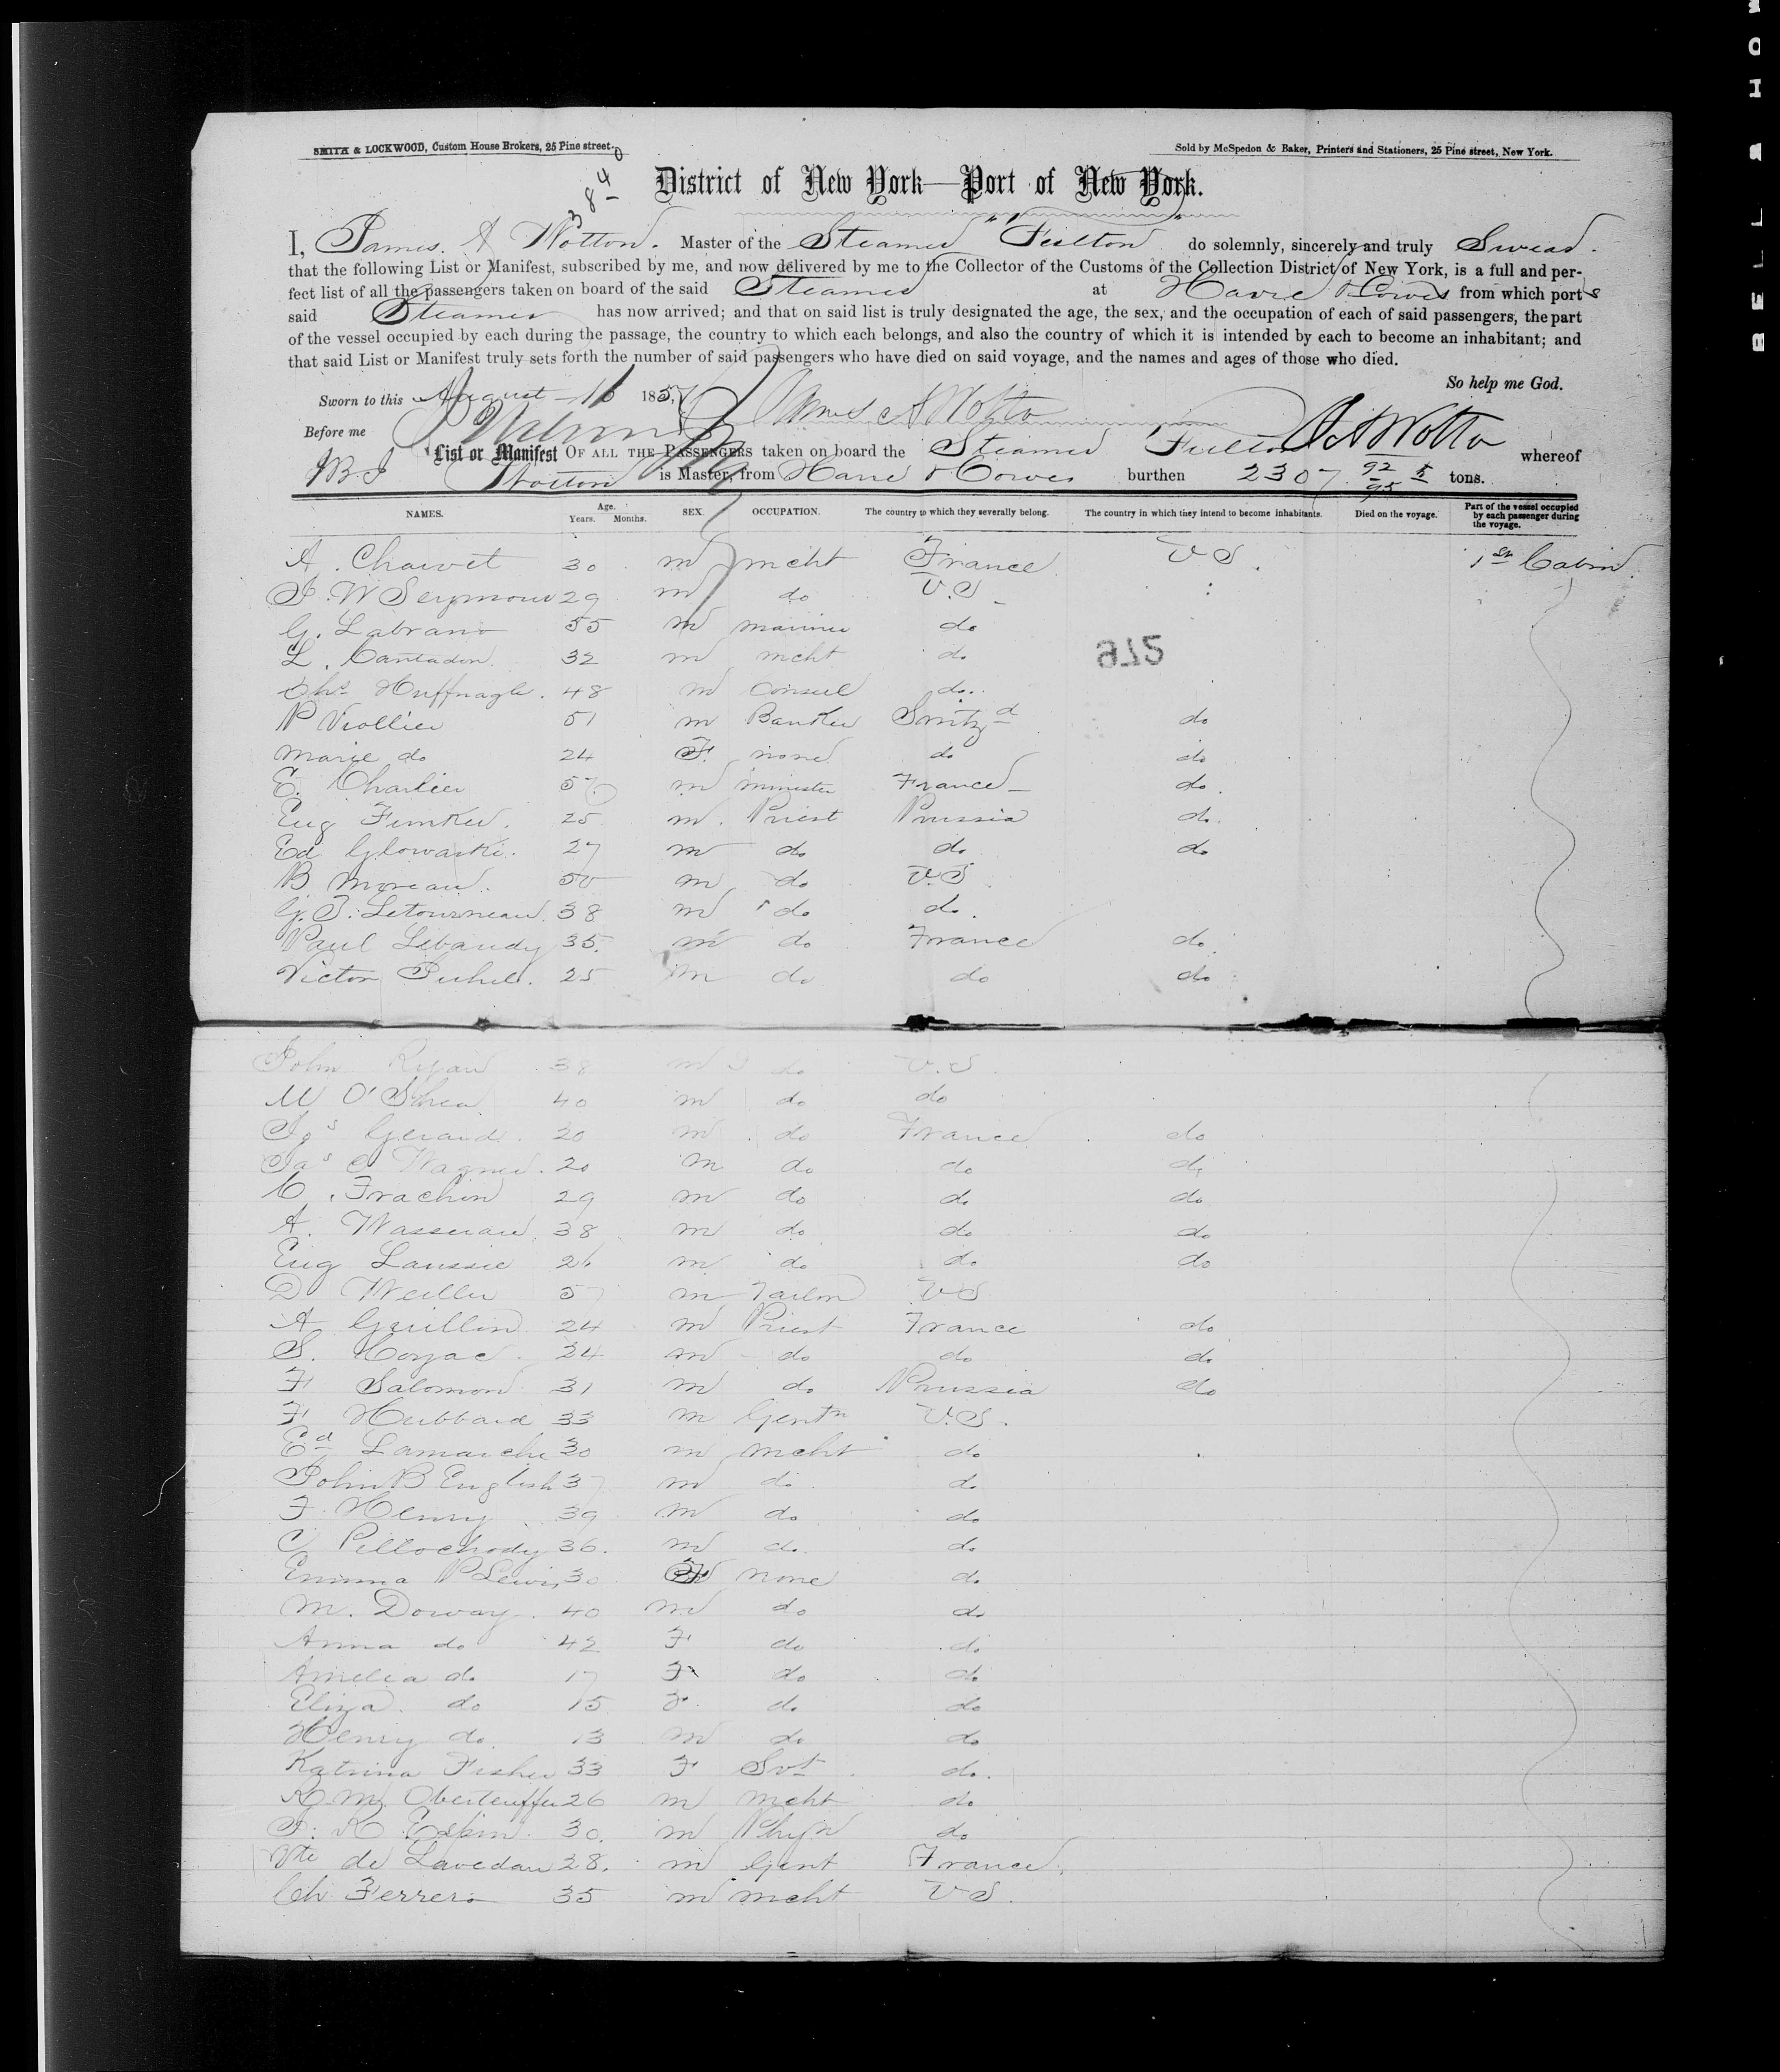 SMITH & LOCKWOOD, Custom House Brokers, 25 Pine street.
Sold by McSpedon & Baker, Printers and Stationers, 25 Pine street, New York.
3840
District of New York—Port of New York.
I, James A Wotton. Master of the Steamer "Fulton" do solemnly, sincerely and truly Swear.
that the following List or Manifest, subscribed by me, and now delivered by me to the Collector of the Customs of the Collection District of New York, is a full and per-
fect list of all the passengers taken on board of the said Steamer at Havre & Cowes from which ports
said Steamer has now arrived; and that on said list is truly designated the age, the sex, and the occupation of each of said passengers, the part
of the vessel occupied by each during the passage, the country to which each belongs, and also the country of which it is intended by each to become an inhabitant; and
that said List or Manifest truly sets forth the number of said passengers who have died on said voyage, and the names and ages of those who died.
So help me God.
Sworn to this August 16 1857 James A Wotton
Before me
List or Manifest OF ALL THE PASSENGERS taken on board the Steamer Fulton J A Wotton whereof
Wotton is Master, from Havre & Cowes burthen 2307 92/95 tons.
NAMES. Age. Years. Months. SEX. OCCUPATION. The country to which they severally belong. The country in which they intend to become inhabitants. Died on the voyage. Part of the vessel occupied by each passenger during the voyage.
A. Chauvet 30 m mcht France U S. 1st Cabin
J. W Seymour 29 m do U.S
G. Labrano 55 m mariner do
L. Cantadon. 32 m mcht do
275
Chs Huffnagle. 48 m Consul do.
P Viollier 51 m Banker Switzd do
Marie do 24 F. none do do
E. Charlier 57 m minister France do.
Eug Funker. 25 m. Priest Prussia do.
Ed Glowaski. 27 m do do do
B Moreau. 50 m do U.S
G. F. Letourneau. 38 m do do.
Paul Libaudy 35. m do France do
Victor Puhel. 25 m do do do
John Ryan 38 m do U.S
M O'Shea 40 m do do
Jos Gerard. 20 m do France do
Jas C Wagner. 20 m do do do
C. Frachon 29 m do do do
A. Wasserau. 38 m do do do
Eug Laussie 26 m do do do
D Weiller 57 m Tailor U S
A Guillon 24 m Priest France do
S. Coyac. 24 m do do do
F Salomon 31 m do Prussia do
F Hubbard 33 m Gentn U.S.
Ed Lamarche 30 m mcht do
John B English 37 m do do
F. Henry 39 m do do
C Pillochody 36. m do. do
Emma P Lewis 30 F none do
M. Dorvay. 40 m do do
Anna do 42 F do do
Amelia do 17 F do do
Eliza do 15 F. do do
Henry do. 13 m do do
Katrina Fisher 33 F Svt do.
H. M. Oberteuffer 26 m mcht do
J. R Espin. 30. m Phyn do
Vte de Lavedan 28. m Gent France.
Ch Ferrero 35 m mcht U S.